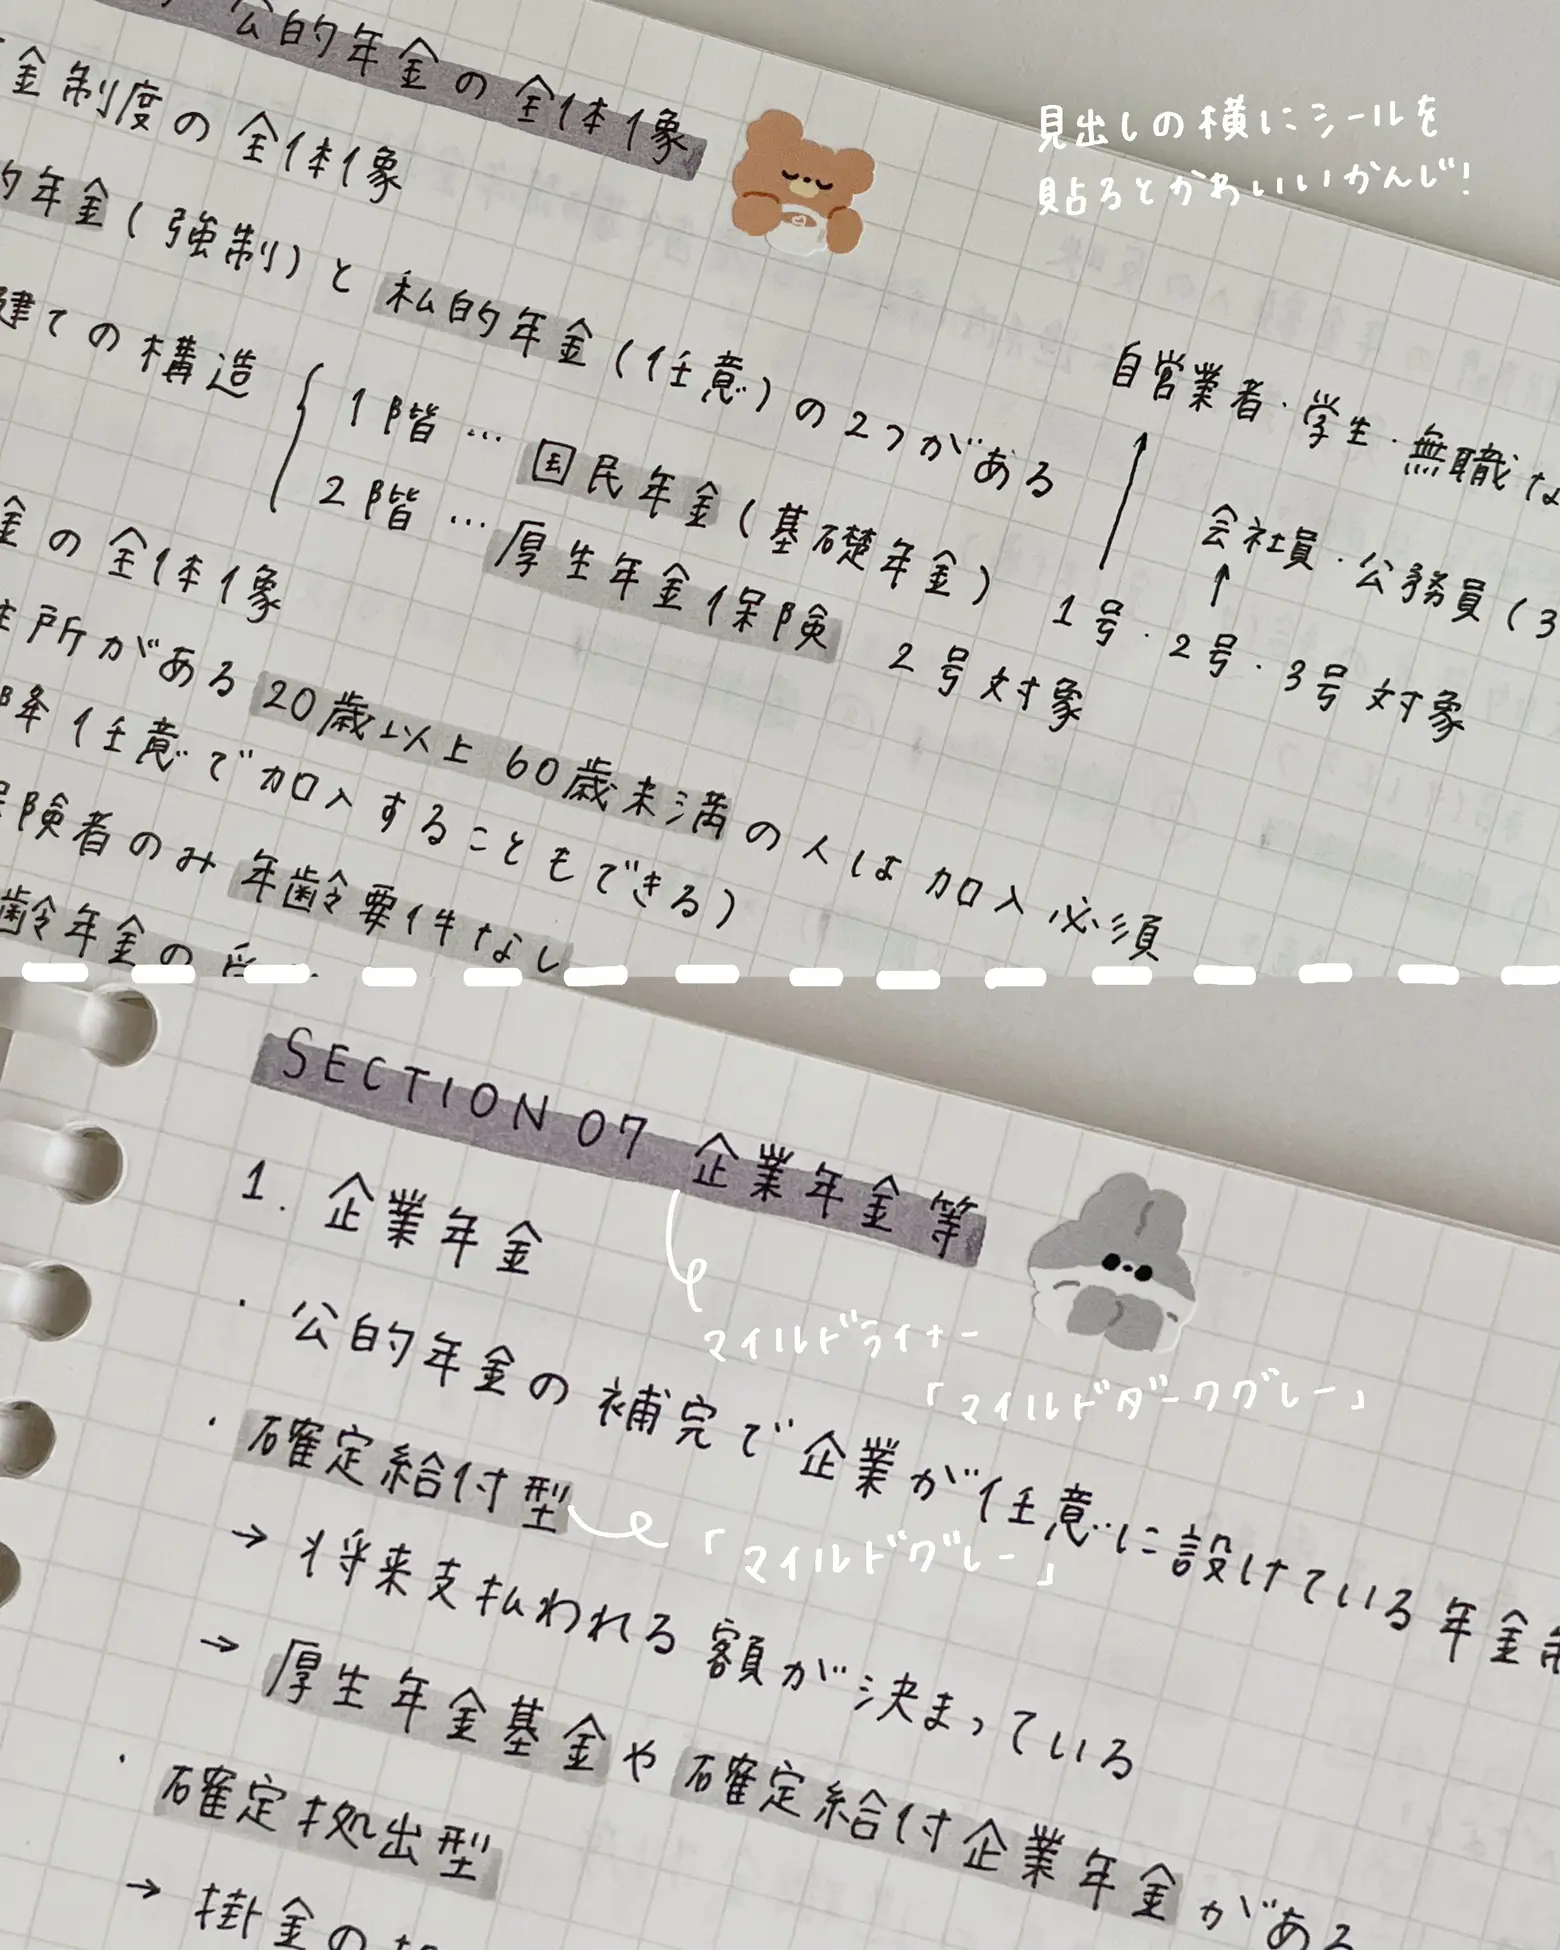 公的年金の全体像
金制度の全体像
見出しの横にシールを
貼るとかわいいかんじ!
的年金(強制)と私的年金(任意)の2つがある
建ての構造
1階…国民年金(基礎年金) 1号・2号・3号対象
2階…厚生年金保険 2号対象
自営業者・学生・無職な
会社員・公務員(3
金の全体像
住所がある20歳以上60歳未満の人は加入必須
降任意で加入することもできる)
保険者のみ年齢要件なし
齢年金の受
SECTION 07 企業年金等
1. 企業年金
マイルドライナー
「マイルドダークグレー」
・公的年金の補完で企業が任意に設けている年金制
・確定給付型
「マイルドグレー」
→ 将来支払われる額が決まっている
→ 厚生年金基金や確定給付企業年金がある
・確定拠出型
→ 掛金の